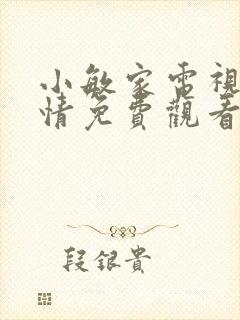 小敏家電視
情免費觀看
段銀貴